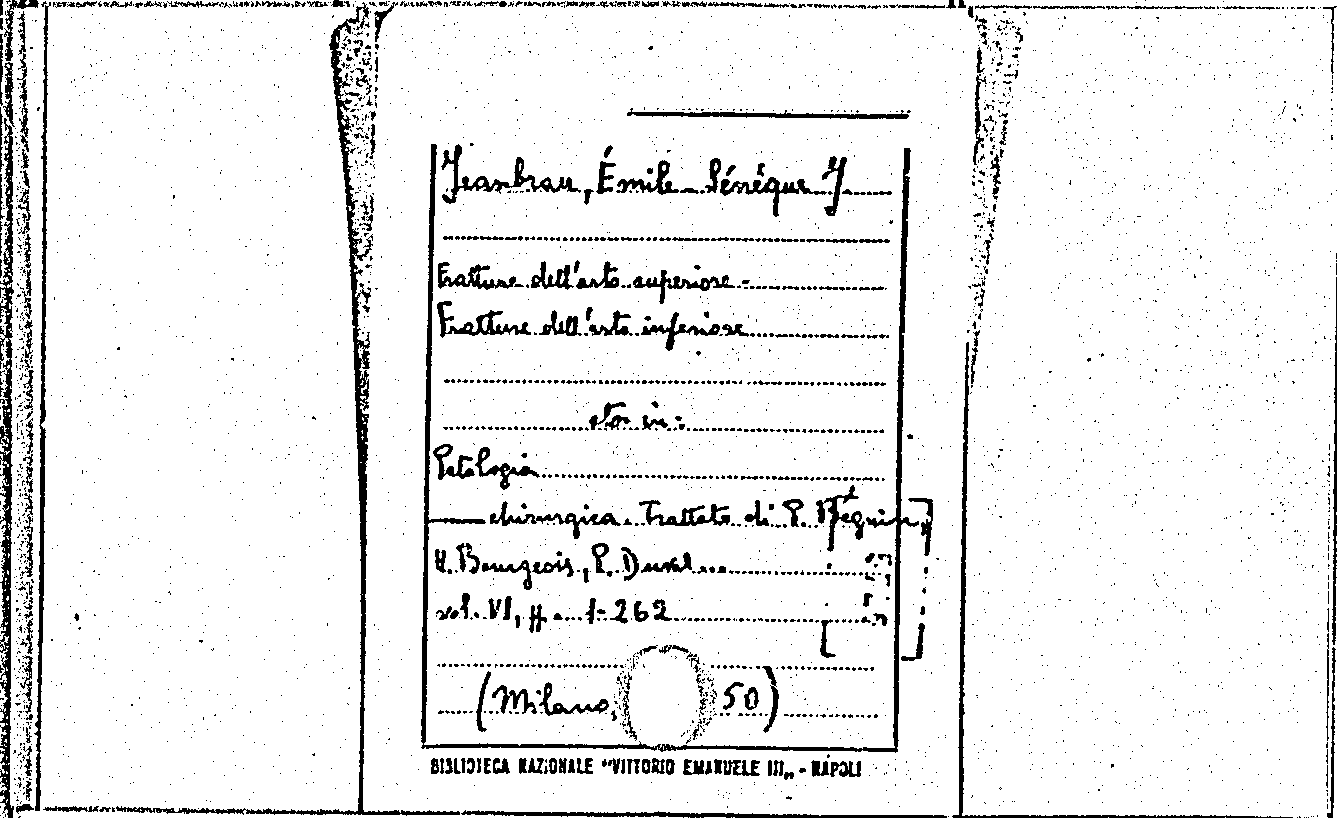 Jeanbrau, Émile - Sénéque J.
Fratture dell'arto superiore -
Fratture dell'arto inferiore
sta in:
Patologia
chirurgica. Trattato di P. Bégouin,
H. Bourgeois, P. Duval ...
vol. VI, pp. 1-262
(Milano, 50)
BIBLIOTECA NAZIONALE "VITTORIO EMANUELE III„ - NAPOLI